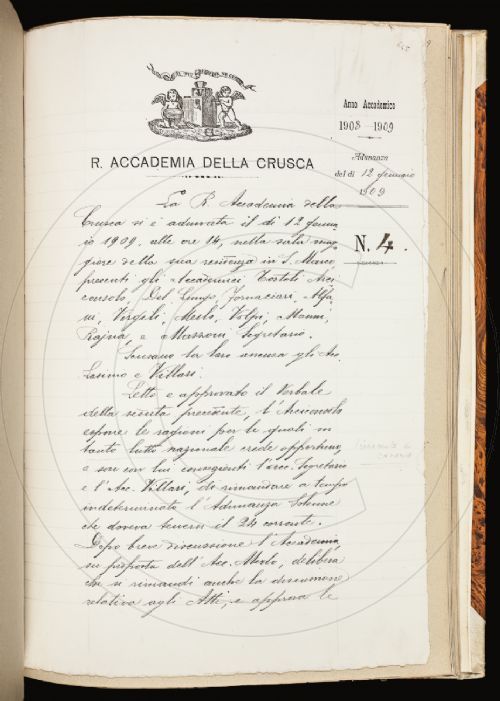 Anno Accademico
1908-1909
Adunanza
del dì 12 gennaio
1909
N. 4.
R. ACCADEMIA DELLA CRUSCA
La R. Accademia della
Crusca si è adunata il dì 12 genna
io 1909, alle ore 14, nella sala mag
giore della sua residenza in S. Marco
presenti gli Accademici Tortoli Arci
consolo, Del Lungo, Fornaciari, Alfa
ni, Vergeli, Mestica, Volpi, Mazzi,
Rajna, e Mazzoni Segretario.
Scusano la loro assenza gli Acc.
Lasinio e Villari.
Letto e approvato il Verbale
della seduta precedente, l'Arciconsolo
espone le ragioni per le quali in
tanto lutto nazionale crede opportuno,
e son con lui consenzienti l'acc. Segretario
e l'Acc. Villari, di rimandare a tempo
indeterminato l'Adunanza Solenne
che doveva tenersi il 24 corrente.
Dopo breve discussione l'Accademia,
su proposta dell'Acc. delibera
che si rimandi anche la discussione
relativa agli Atti, e approva le